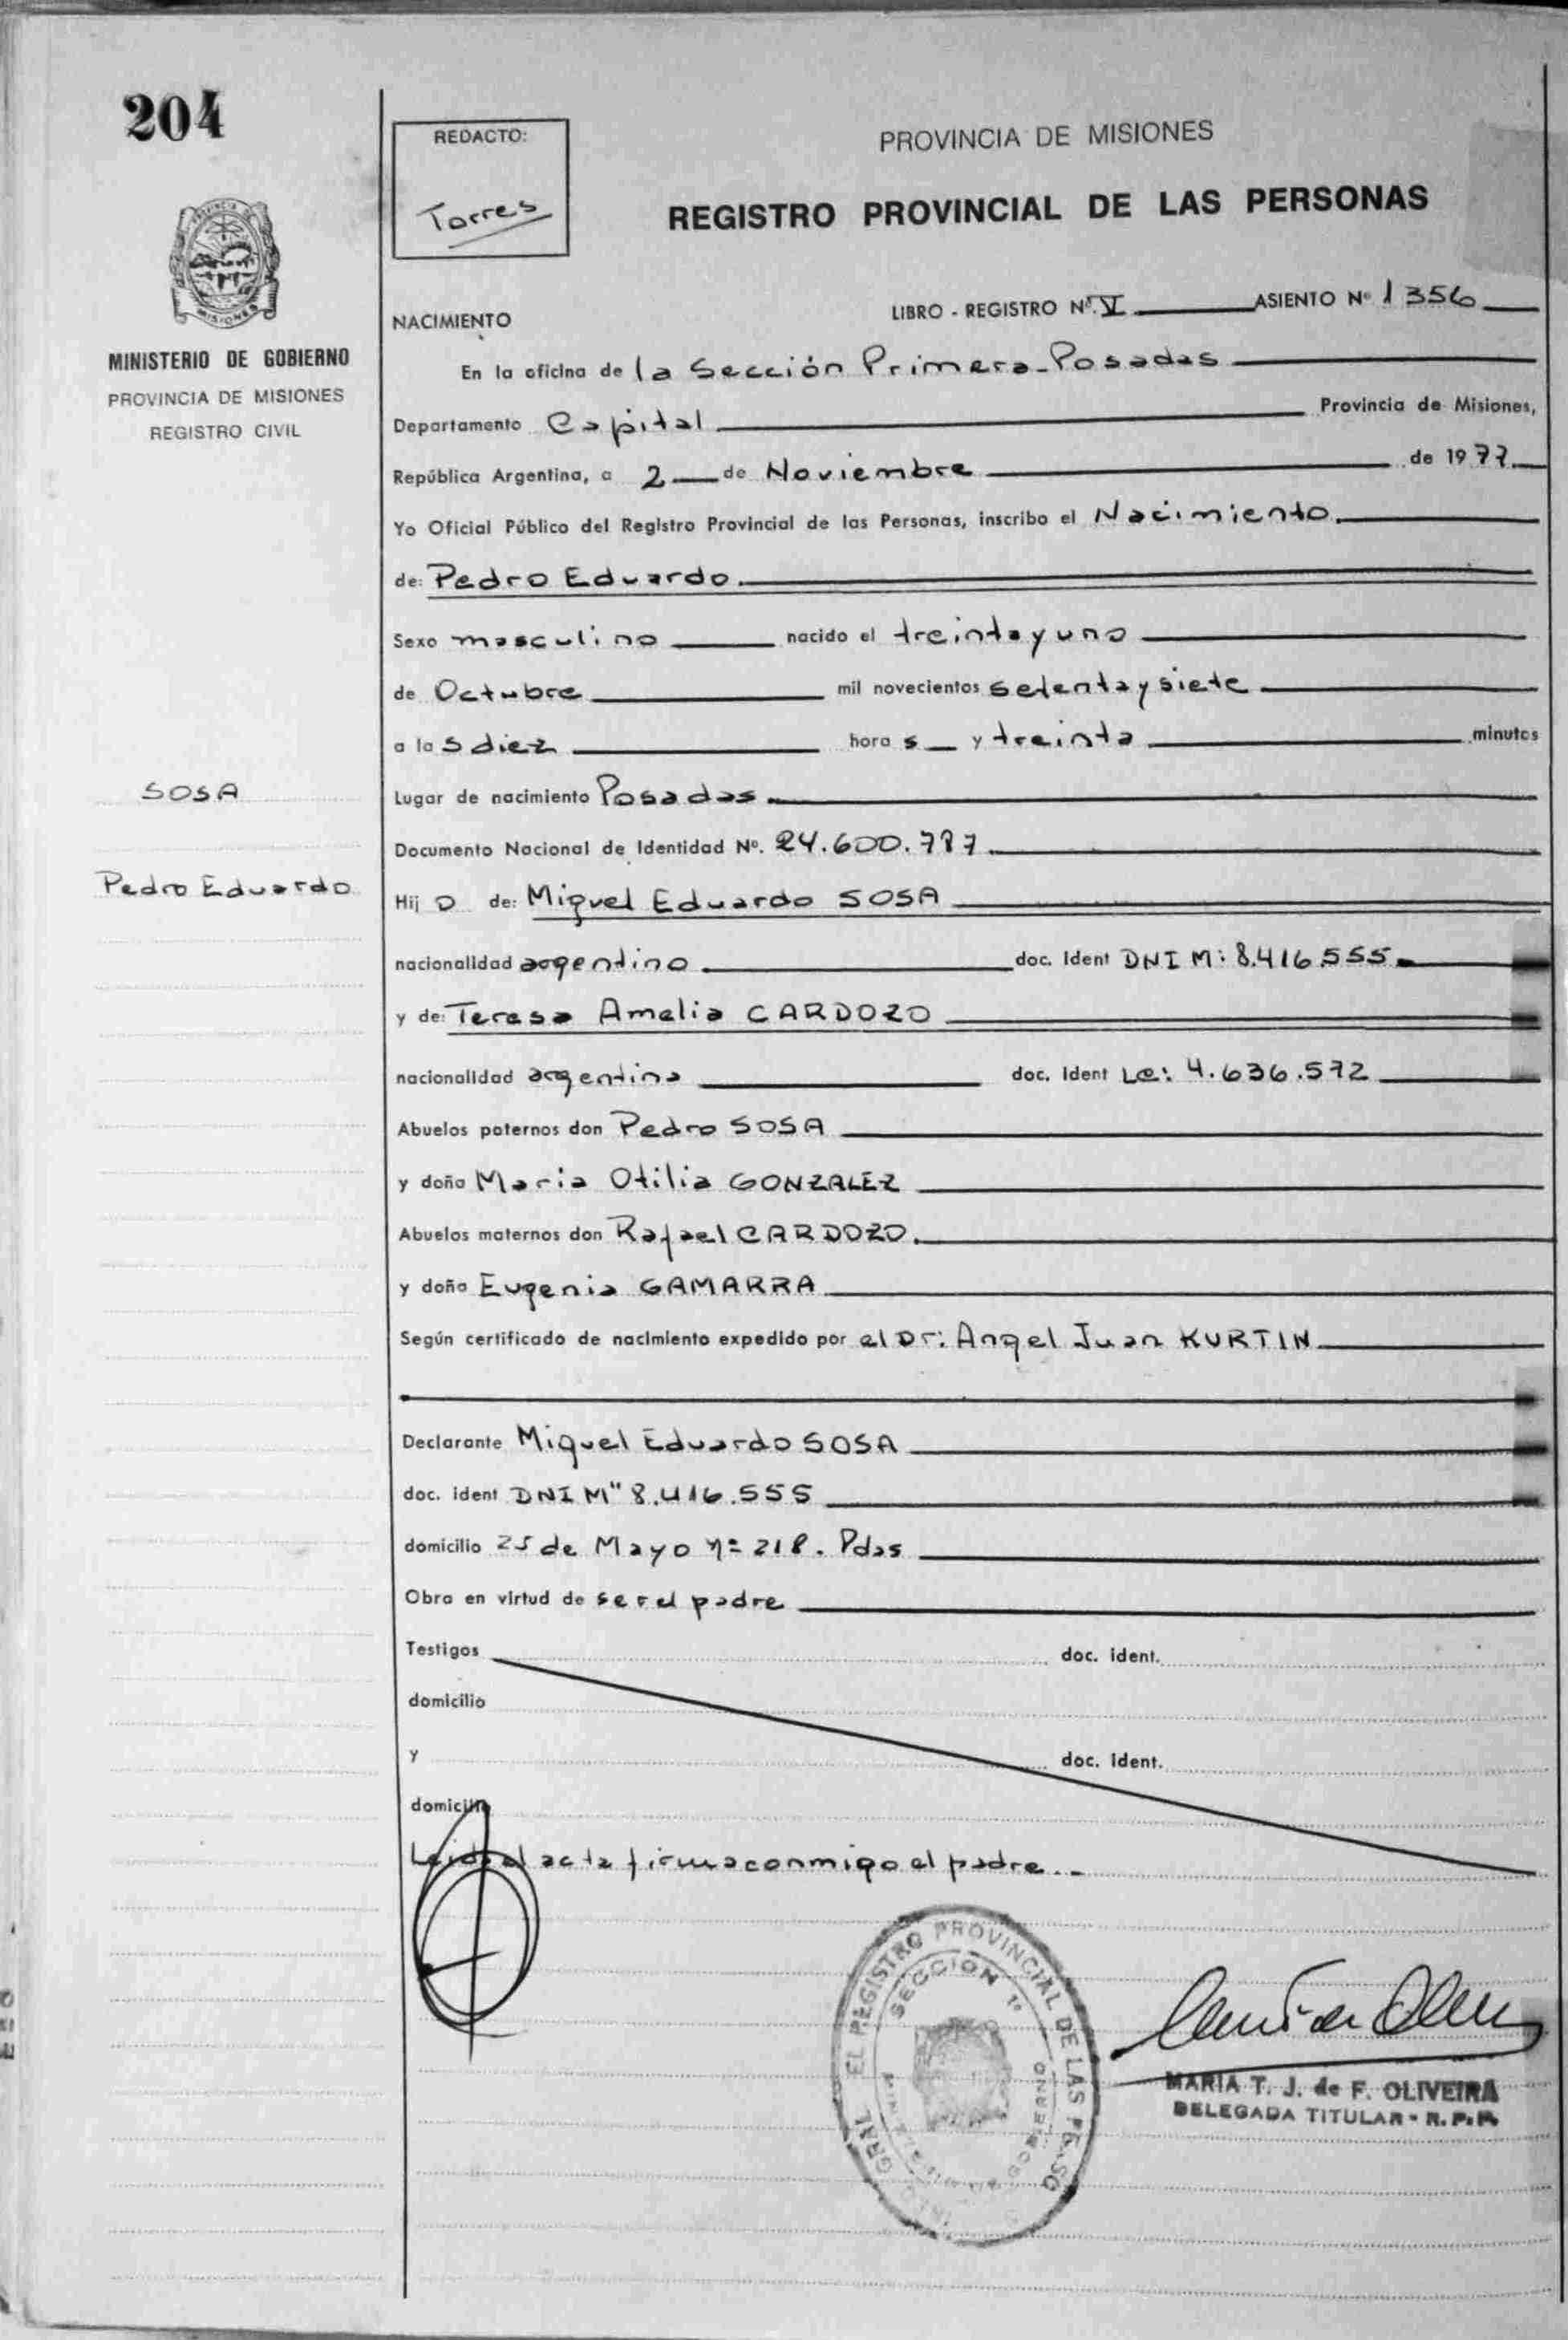 204
REDACTO:
Torres
PROVINCIA DE MISIONES
REGISTRO PROVINCIAL DE LAS PERSONAS
MISIONES
MINISTERIO DE GOBIERNO
PROVINCIA DE MISIONES
REGISTRO CIVIL
NACIMIENTO
LIBRO - REGISTRO Nº. V ASIENTO Nº 1356
En la oficina de la Sección Primera-Posadas
Departamento Capital Provincia de Misiones,
República Argentina, a 2 de Noviembre de 1977
Yo Oficial Público del Registro Provincial de las Personas, inscribo el Nacimiento
de: Pedro Eduardo
Sexo masculino nacido el treinta y uno
de Octubre mil novecientos setenta y siete
a las diez horas y treinta minutos
SOSA
Lugar de nacimiento Posadas
Documento Nacional de Identidad Nº. 24.600.787
Pedro Eduardo
Hijo de: Miguel Eduardo SOSA
nacionalidad argentino doc. Ident DNI M: 8.416.555
y de: Teresa Amelia CARDOZO
nacionalidad argentina doc. Ident Lc: 4.636.572
Abuelos paternos don Pedro SOSA
y doña Maria Otilia GONZALEZ
Abuelos maternos don Rafael CARDOZO
y doña Eugenia GAMARRA
Según certificado de nacimiento expedido por el Dr: Angel Juan KURTIN
Declarante Miguel Eduardo SOSA
doc. ident DNI M" 8.416.555
domicilio 25 de Mayo nº 218. Pdas
Obra en virtud de ser el padre
Testigos doc. ident.
domicilio
y doc. ident.
domicilio
Leida el acta firma conmigo el padre
EL REGISTRO PROVINCIAL DE LAS
SECCION 1º
GOBIERNO
MARIA T. J. de F. OLIVEIRA
DELEGADA TITULAR - R. P. P.